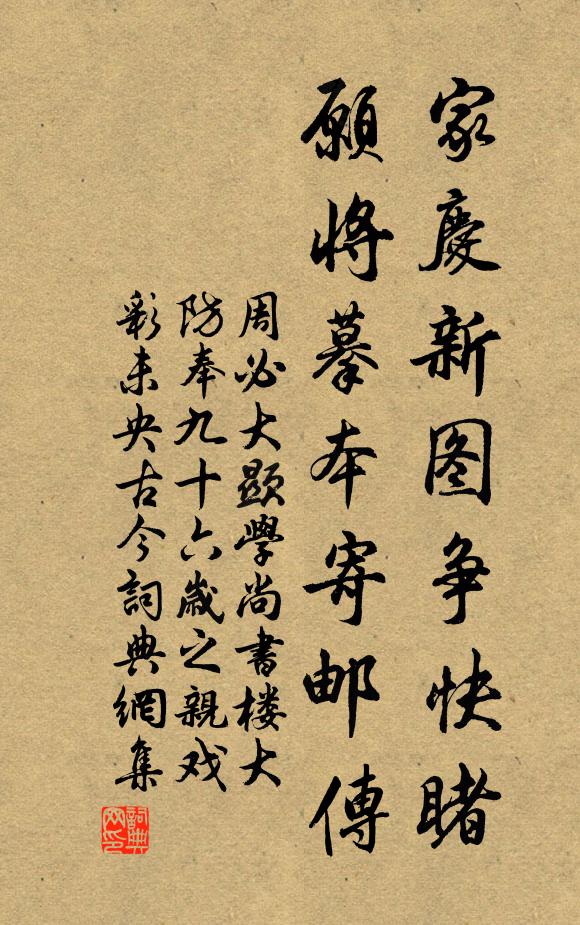 家慶新图争快睹
願将摹本寄邮傳
周必大顯學尚書楼大
防奉九十六歲之親戏
彩未央古今詞典網集
詞典网印